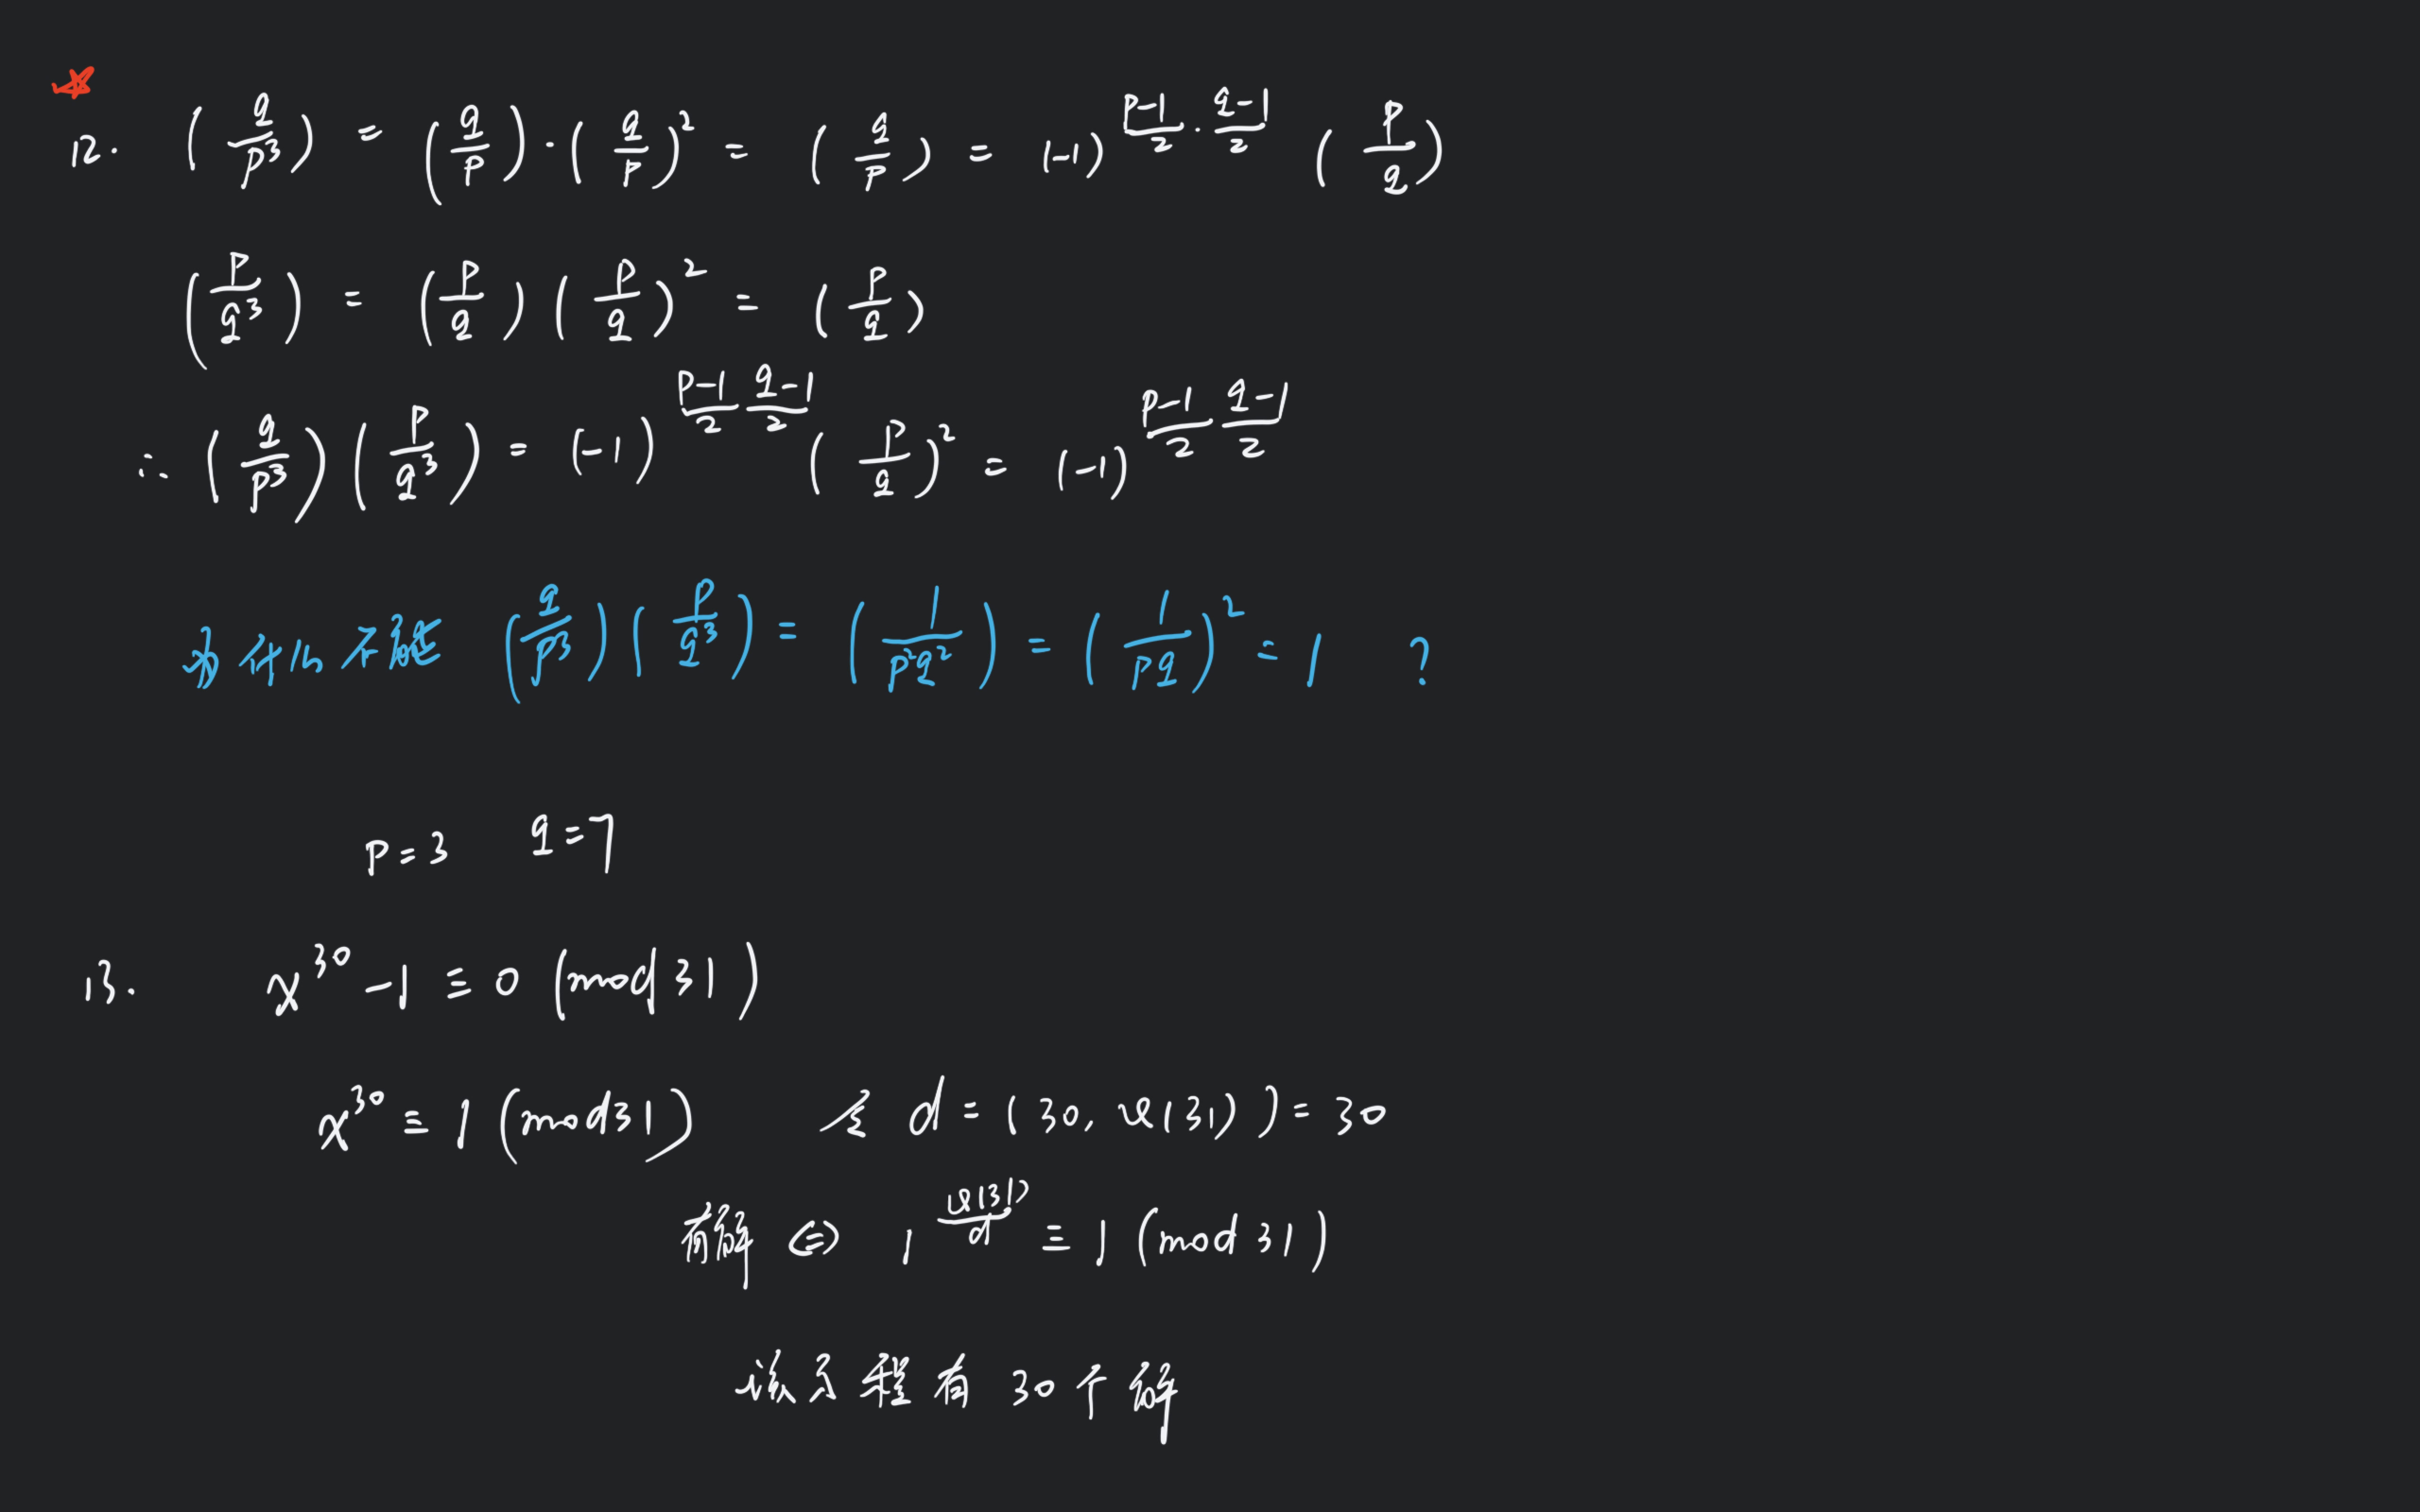 12. (q/p³) = (q/p)·(q/p)² = (q/p) = (-1)^(p-1)/2·(q-1)/2 (p/q)
(p/q³) = (p/q)(p/q)² = (p/q)
∴ (q/p³)(p/q³) = (-1)^(p-1)/2 (q-1)/2 (p/q)² = (-1)^(p-1)/2 (q-1)/2
为什么不能 (q/p³)(p/q³) = (1/p²q²) = (1/pq)² = 1 ?
p=3 q=7
13. x³⁰-1 ≡ 0 (mod 31)
x³⁰ ≡ 1 (mod 31) 令 d = (30, φ(31)) = 30
有解 ⇔ 1^φ(31)/d ≡ 1 (mod 31)
该方程有 30个解